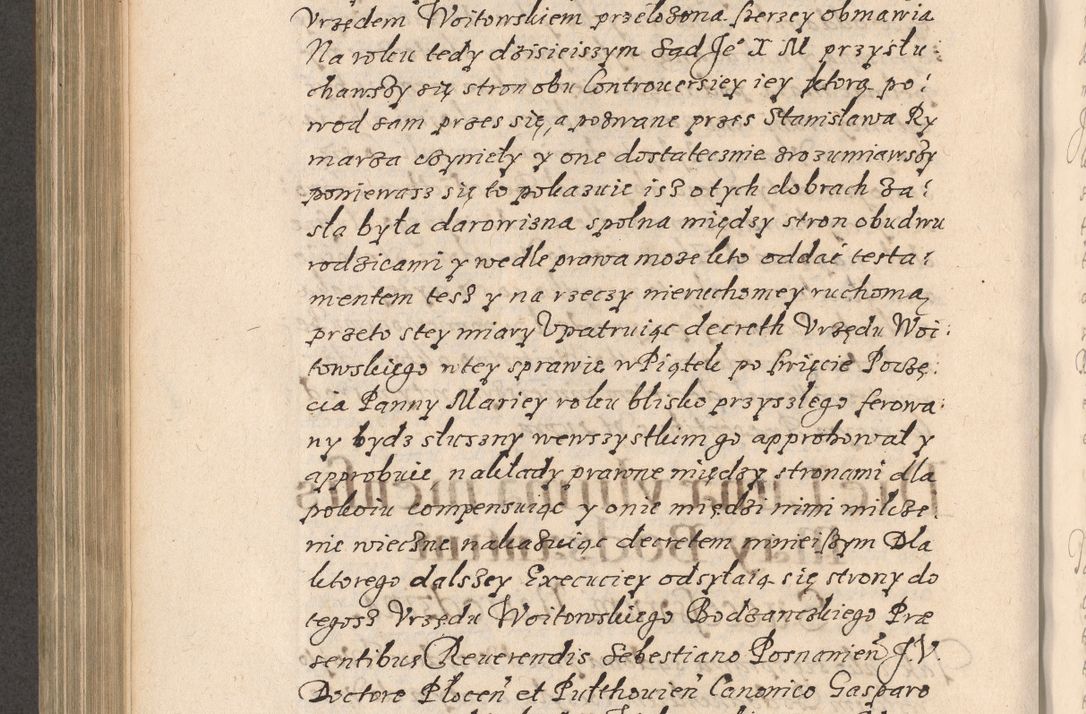 Vrzędem Woitowskiem przełozona szerzey obmawia
Na roku tedy dzisieiszym Sąd Je° X M przysłu:
chawszy się stron obu Controuersiey iey ktorą po:
wod sam przes się, a pozwane przes Stanisława Ry
marza czyniely y one dostatecznie zrozumiawszy
poniewasz się to pokazuie isz o tych dobrach za:
sła była darowizna spolna między stron obudwu
rodzicami y wedle prawa może kto oddać testa:
mentem tesz y na rzeczy nieruchomey ruchomą,
przeto s tey miary Vpatruiąc decreth Vrzędu Woi:
towskiego w tey sprawie w Piątek po święcie Poczę:
cia Panny Mariey roku blisko przyszłego ferowa:
ny bydz słuszny we wszystkim go approbował y
approbuie nakłady prawne między stronami dla
pokoiu compensuiąc y onie między nimi milcze:
nie wieczne nakazuiąc decretem ninieiszym Dla
ktorego dalszey Execuciey odsyłaią się strony do
tegosz Vrzędu Woitowskiego Bodzanczkiego Præ
sentibus Reuerendis Sebestiano Posnanien̄ J. V.
Doctore Płocen̄ et Pułthouien̄ Canonico Gasparo